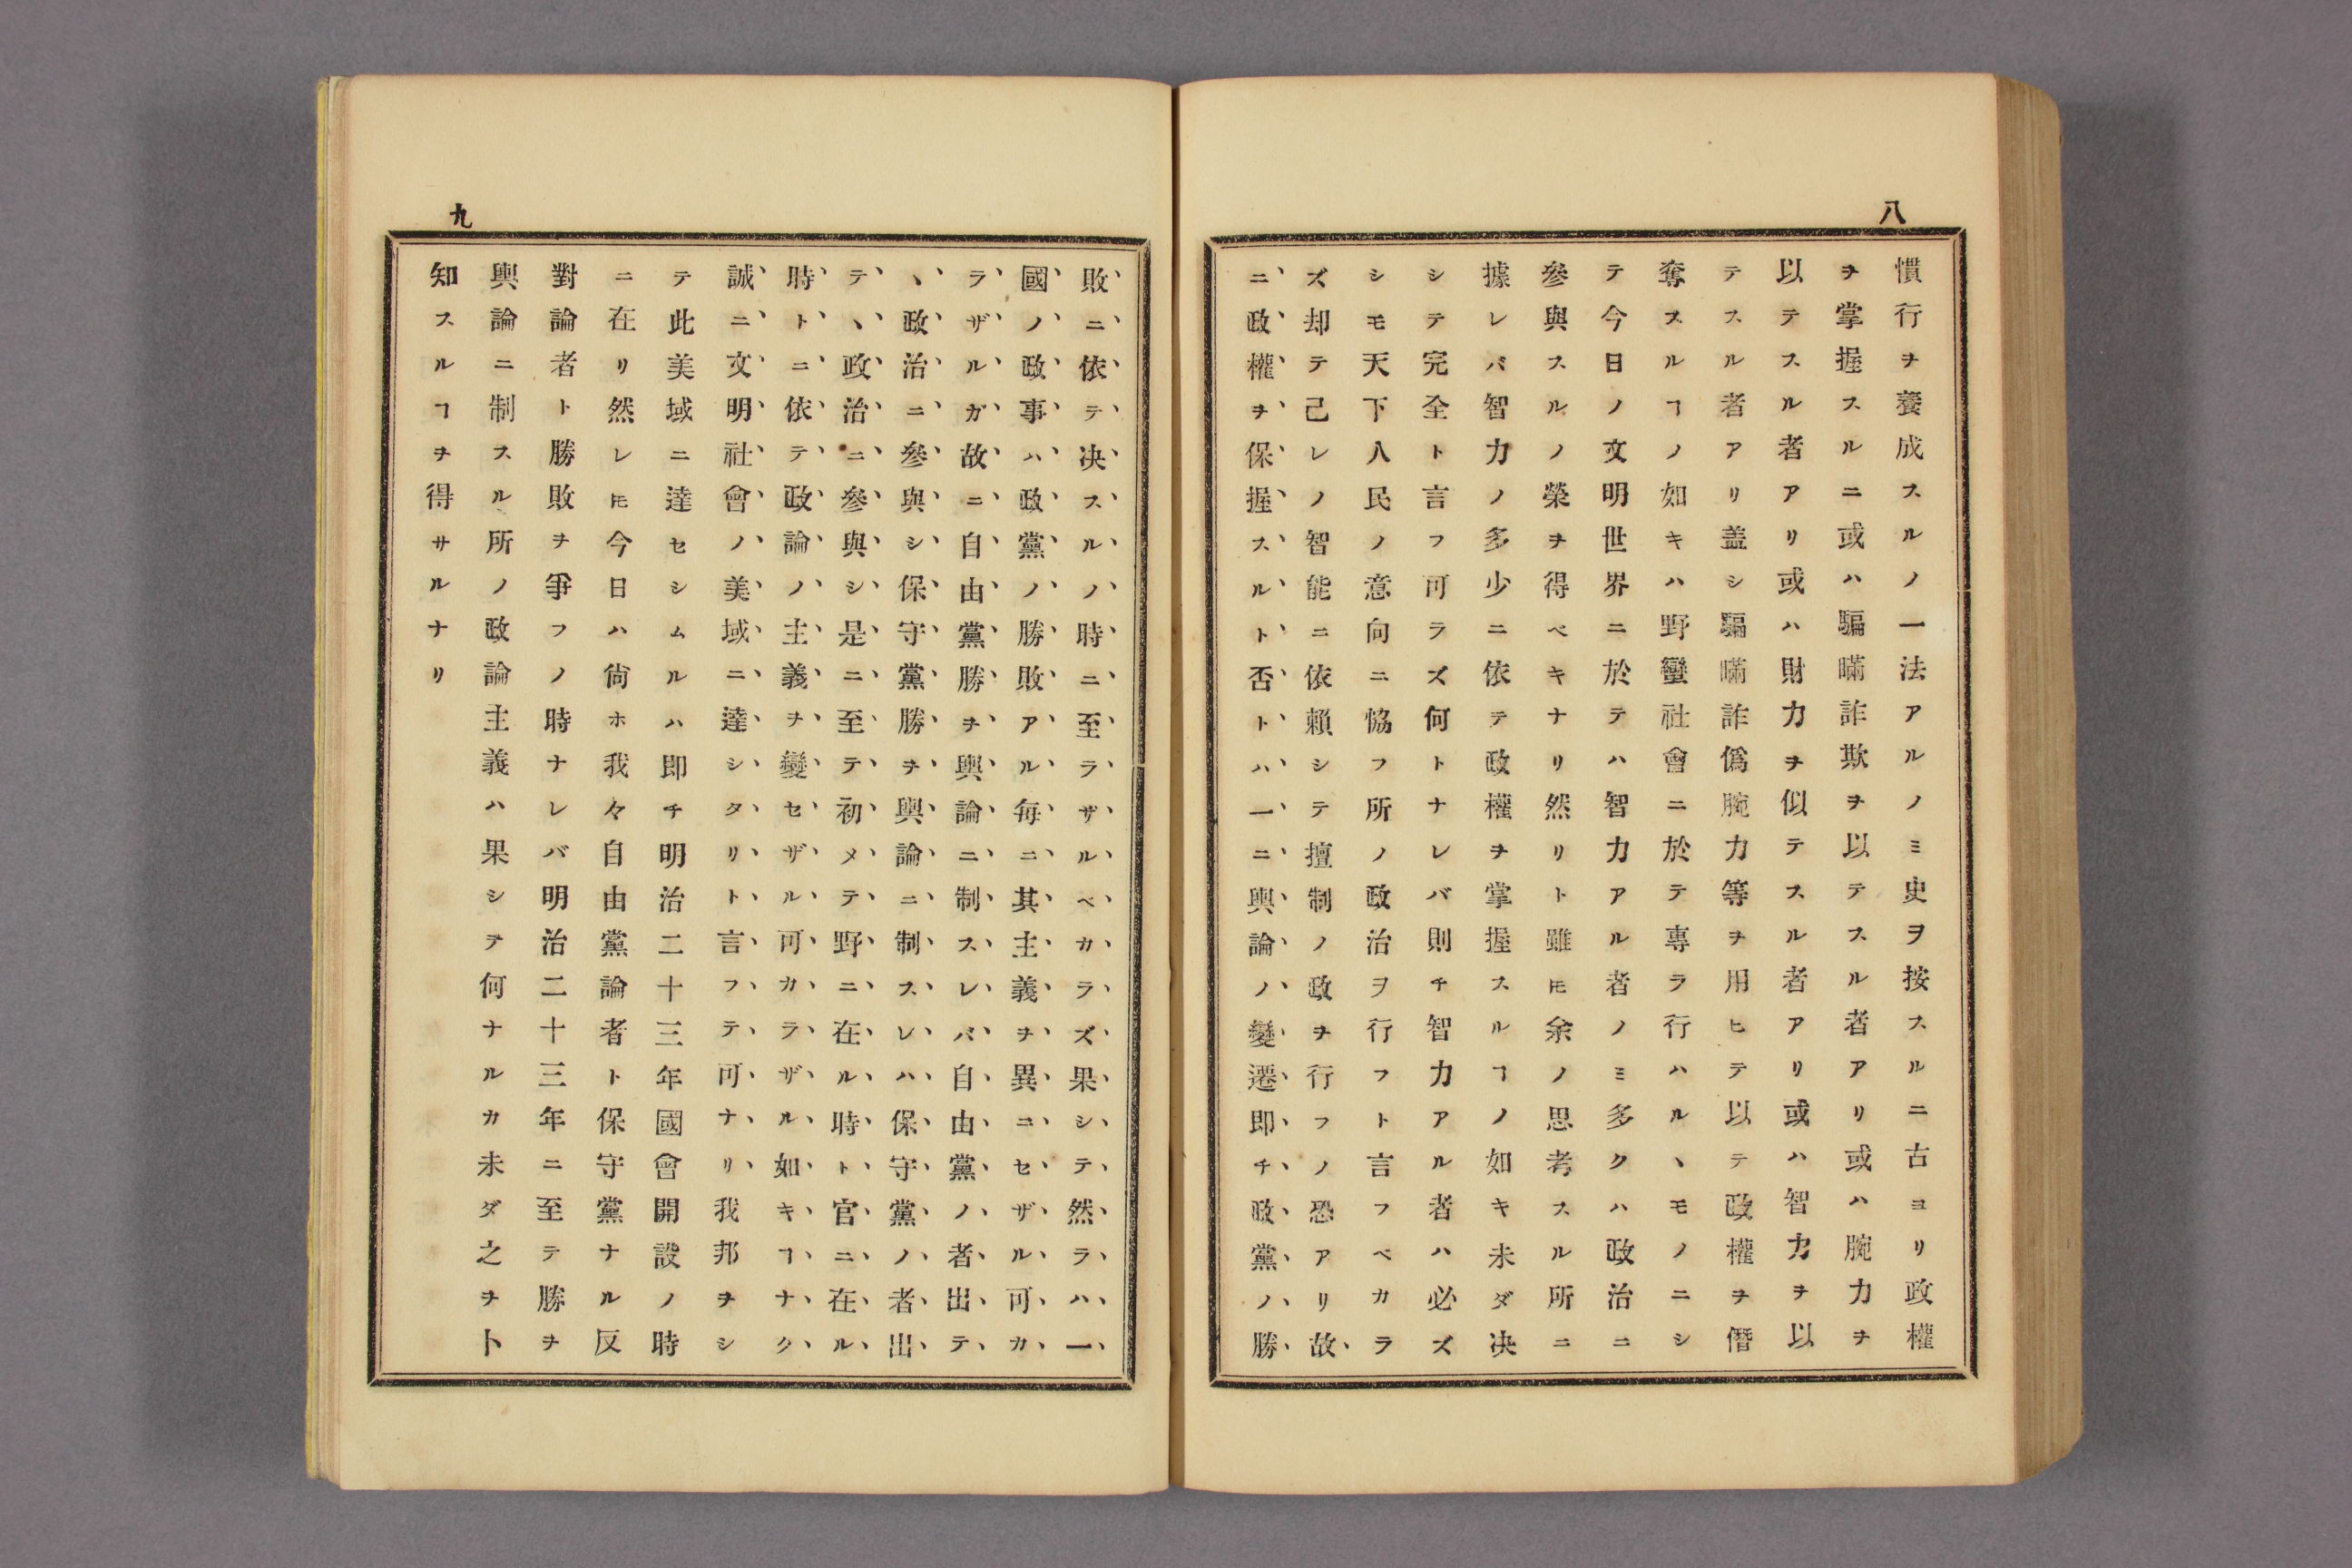 八
慣行ヲ養成スルノ一法アルノミ史ヲ按スルニ古ヨリ政權
ヲ掌握スルニ或ハ騙瞞詐欺ヲ以テスル者アリ或ハ腕力ヲ
以テスル者アリ或ハ財力ヲ似テスル者アリ或ハ智力ヲ以
テスル者アリ盖シ騙瞞詐僞腕力等ヲ用ヒテ以テ政權ヲ僭
奪スルヿノ如キハ野蠻社會ニ於テ專ラ行ハルヽモノニシ
テ今日ノ文明世界ニ於テハ智力アル者ノミ多クハ政治ニ
參與スルノ榮ヲ得ベキナリ然リト雖𪜈余ノ思考スル所ニ
據レバ智力ノ多少ニ依テ政權ヲ掌握スルヿノ如キ未ダ决
シテ完全ト言フ可ラズ何トナレバ則チ智力アル者ハ必ズ
シモ天下人民ノ意向ニ恊フ所ノ政治ヲ行フト言フベカラ
ズ却テ己レノ智能ニ依賴シテ擅制ノ政ヲ行フノ恐アリ故
ニ政權ヲ保握スルト否トハ一ニ輿論ノ變遷即チ政黨ノ勝
九
敗ニ依テ决スルノ時ニ至ラザルベカラズ果シテ然ラハ一
國ノ政事ハ政黨ノ勝敗アル毎ニ其主義ヲ異ニセザル可カ
ラザルガ故ニ自由黨勝ヲ輿論ニ制スレバ自由黨ノ者出テ
ヽ政治ニ參與シ保守黨勝ヲ輿論ニ制スレハ保守黨ノ者出
テヽ政治ニ參與シ是ニ至テ初メテ野ニ在ル時ト官ニ在ル
時トニ依テ政論ノ主義ヲ變セザル可カラザル如キヿナク
誠ニ文明社會ノ美域ニ達シタリト言フテ可ナリ我邦ヲシ
テ此美域ニ達セシムルハ即チ明治二十三年國會開設ノ時
ニ在リ然レ𪜈今日ハ尙ホ我々自由黨論者ト保守黨ナル反
對論者ト勝敗ヲ爭フノ時ナレバ明治二十三年ニ至テ勝ヲ
輿論ニ制スル所ノ政論主義ハ果シテ何ナルカ未ダ之ヲ卜
知スルヿヲ得サルナリ